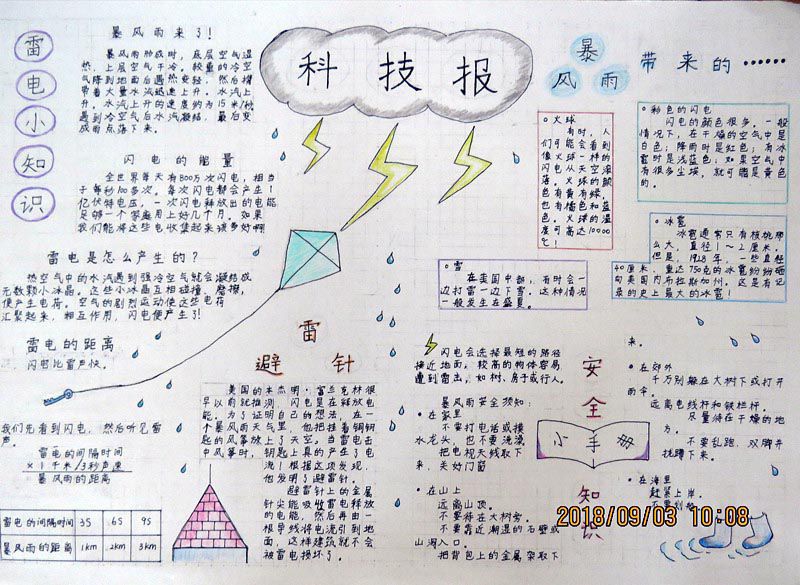 科技报
雷电小知识
暴风雨来了!
暴风雨形成时,底层空气湿
热,上层空气干冷,较重的冷空
气降到地面后遇热变轻,然后携
带着大量水汽迅速上升。水汽上
升。水汽上升的速度约为15米/秒
遇到冷空气后水汽凝结,最后变
成雨点落下来。
闪电的能量
全世界每天有800万次闪电,相当
于每秒100多次。每次闪电都会产生1
亿伏特电压,一次闪电释放出的电能
足够一个家庭用上好几个月。如果
我们能将这些电收集起来该多好啊
雷电是怎么产生的?
热空气中的水汽遇到强冷空气就会凝结成
无数颗小冰晶。这些小冰晶互相碰撞,磨擦,
便产生电荷。空气的剧烈运动使这些电荷
汇聚起来,相互作用,闪电便产生了!
雷电的距离
闪电比雷声快。
我们先看到闪电,然后听见雷
声。
雷电的间隔时间
×1千米/3秒声速
暴风雨的距离
雷电的间隔时间 3S 6S 9S
暴风雨的距离 1km 2km 3km
避雷针
美国的本杰明·富兰克林很
早以前就推测 闪电是在释放电
能。为了证明自己的想法,在一
个暴风雨天气里,他把拴着铜钥
匙的风筝放上了天空。当雷电击
中风筝时,钥匙上真的产生了电
流!根据这项发现,
他发明了避雷针。
避雷针上的金属
针尖能吸收雷电释放
的电能,然后再由一
根导线将电流引到地
面,这样建筑就不会
被雷电损坏了。
暴风雨带来的……
火球
有时,人
们可能会看到
像火球一样的
闪电从天空滚
落。火球的颜
色有黄有绿,
也有橘色和蓝
色。火球的温
度可高达10000
℃!
彩色的闪电
闪电的颜色很多,一般
情况下,在干燥的空气中是
白色;降雨时是红色;有冰
雹时是浅蓝色;如果空气中
有很多尘埃,就可能是黄色
的。
冰雹
冰雹通常只有核桃那
么大,直径1~2厘米。
但是,1928年,一些直径
40厘米,重达750克的冰雹纷纷砸
向美国内布拉斯加州,这是有记
录的史上最大的冰雹!
雪
在美国中部,有时会一
边打雷一边下雪。这种情况
一般发生在盛夏。
安全小手册知识
闪电会选择最短的路径
接近地面,较高的物体容易
遭到雷击,如树,房子或行人。
暴风雨安全须知:
在家里
不要打电话或摸
水龙头,也不要洗澡
把电视天线取下
来,关好门窗
在山上
远离山顶。
不要待在大树旁。
不要靠近潮湿的石壁或
山洞入口。
把背包上的金属杂取下
来。
在郊外
千万别躲在大树下或打开
雨伞。
远离电线杆和铁栏杆。
尽量待在干燥的地
方。
不要乱跑,双脚并
拢蹲下来。
在海里
赶紧上岸。
2018/09/03 10:08